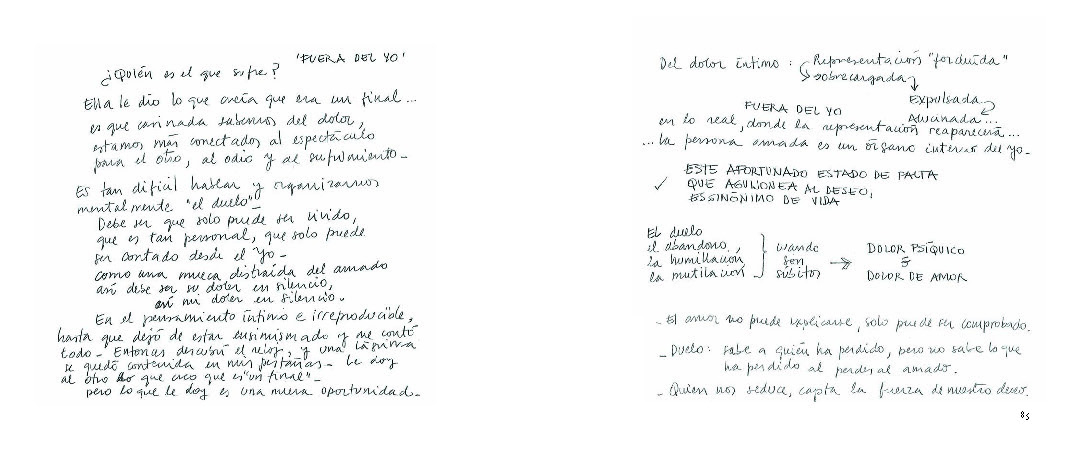 'FUERA DEL YO'
¿Quién es el que sufre?
Ella le dio lo que creía que era un final...
es que casi nada sabemos del dolor,
estamos más conectados al espectáculo
para el otro, al odio y al sufrimiento-
Es tan difícil hablar y organizarnos
mentalmente "el duelo"-
Debe ser que solo puede ser vivido,
que es tan personal, que solo puede
ser contado desde el yo-
como una mueca distraída del amado
así debe ser su dolor en silencio,
así mi dolor en silencio.
En el pensamiento íntimo e irreproducible,
hasta que dejó de estar ensimismado y me contó
todo- Entonces descubrí el reloj, y una lágrima
se quedó contenida en mis pestañas- Le doy
al otro lo que creo que es "un final"-
pero lo que le doy es una nueva oportunidad-
Del dolor íntimo: Representación "forcluida"
sobrecargada
Expulsada
FUERA DEL YO
Alucinada...
en lo real, donde la representación reaparecerá...
...la persona amada es un órgano interior del yo-
✓ ESTE AFORTUNADO ESTADO DE FALTA
QUE AGUIJONEA AL DESEO,
ES SINÓNIMO DE VIDA
El duelo
el abandono,
la humillación
la mutilación
cuando
son
súbitos
DOLOR PSÍQUICO
DOLOR DE AMOR
- El amor no puede explicarse, solo puede ser comprobado.
- Duelo: sabe a quién ha perdido, pero no sabe lo que
ha perdido al perder al amado.
- Quien nos seduce, capta la fuerza de nuestro deseo.
85